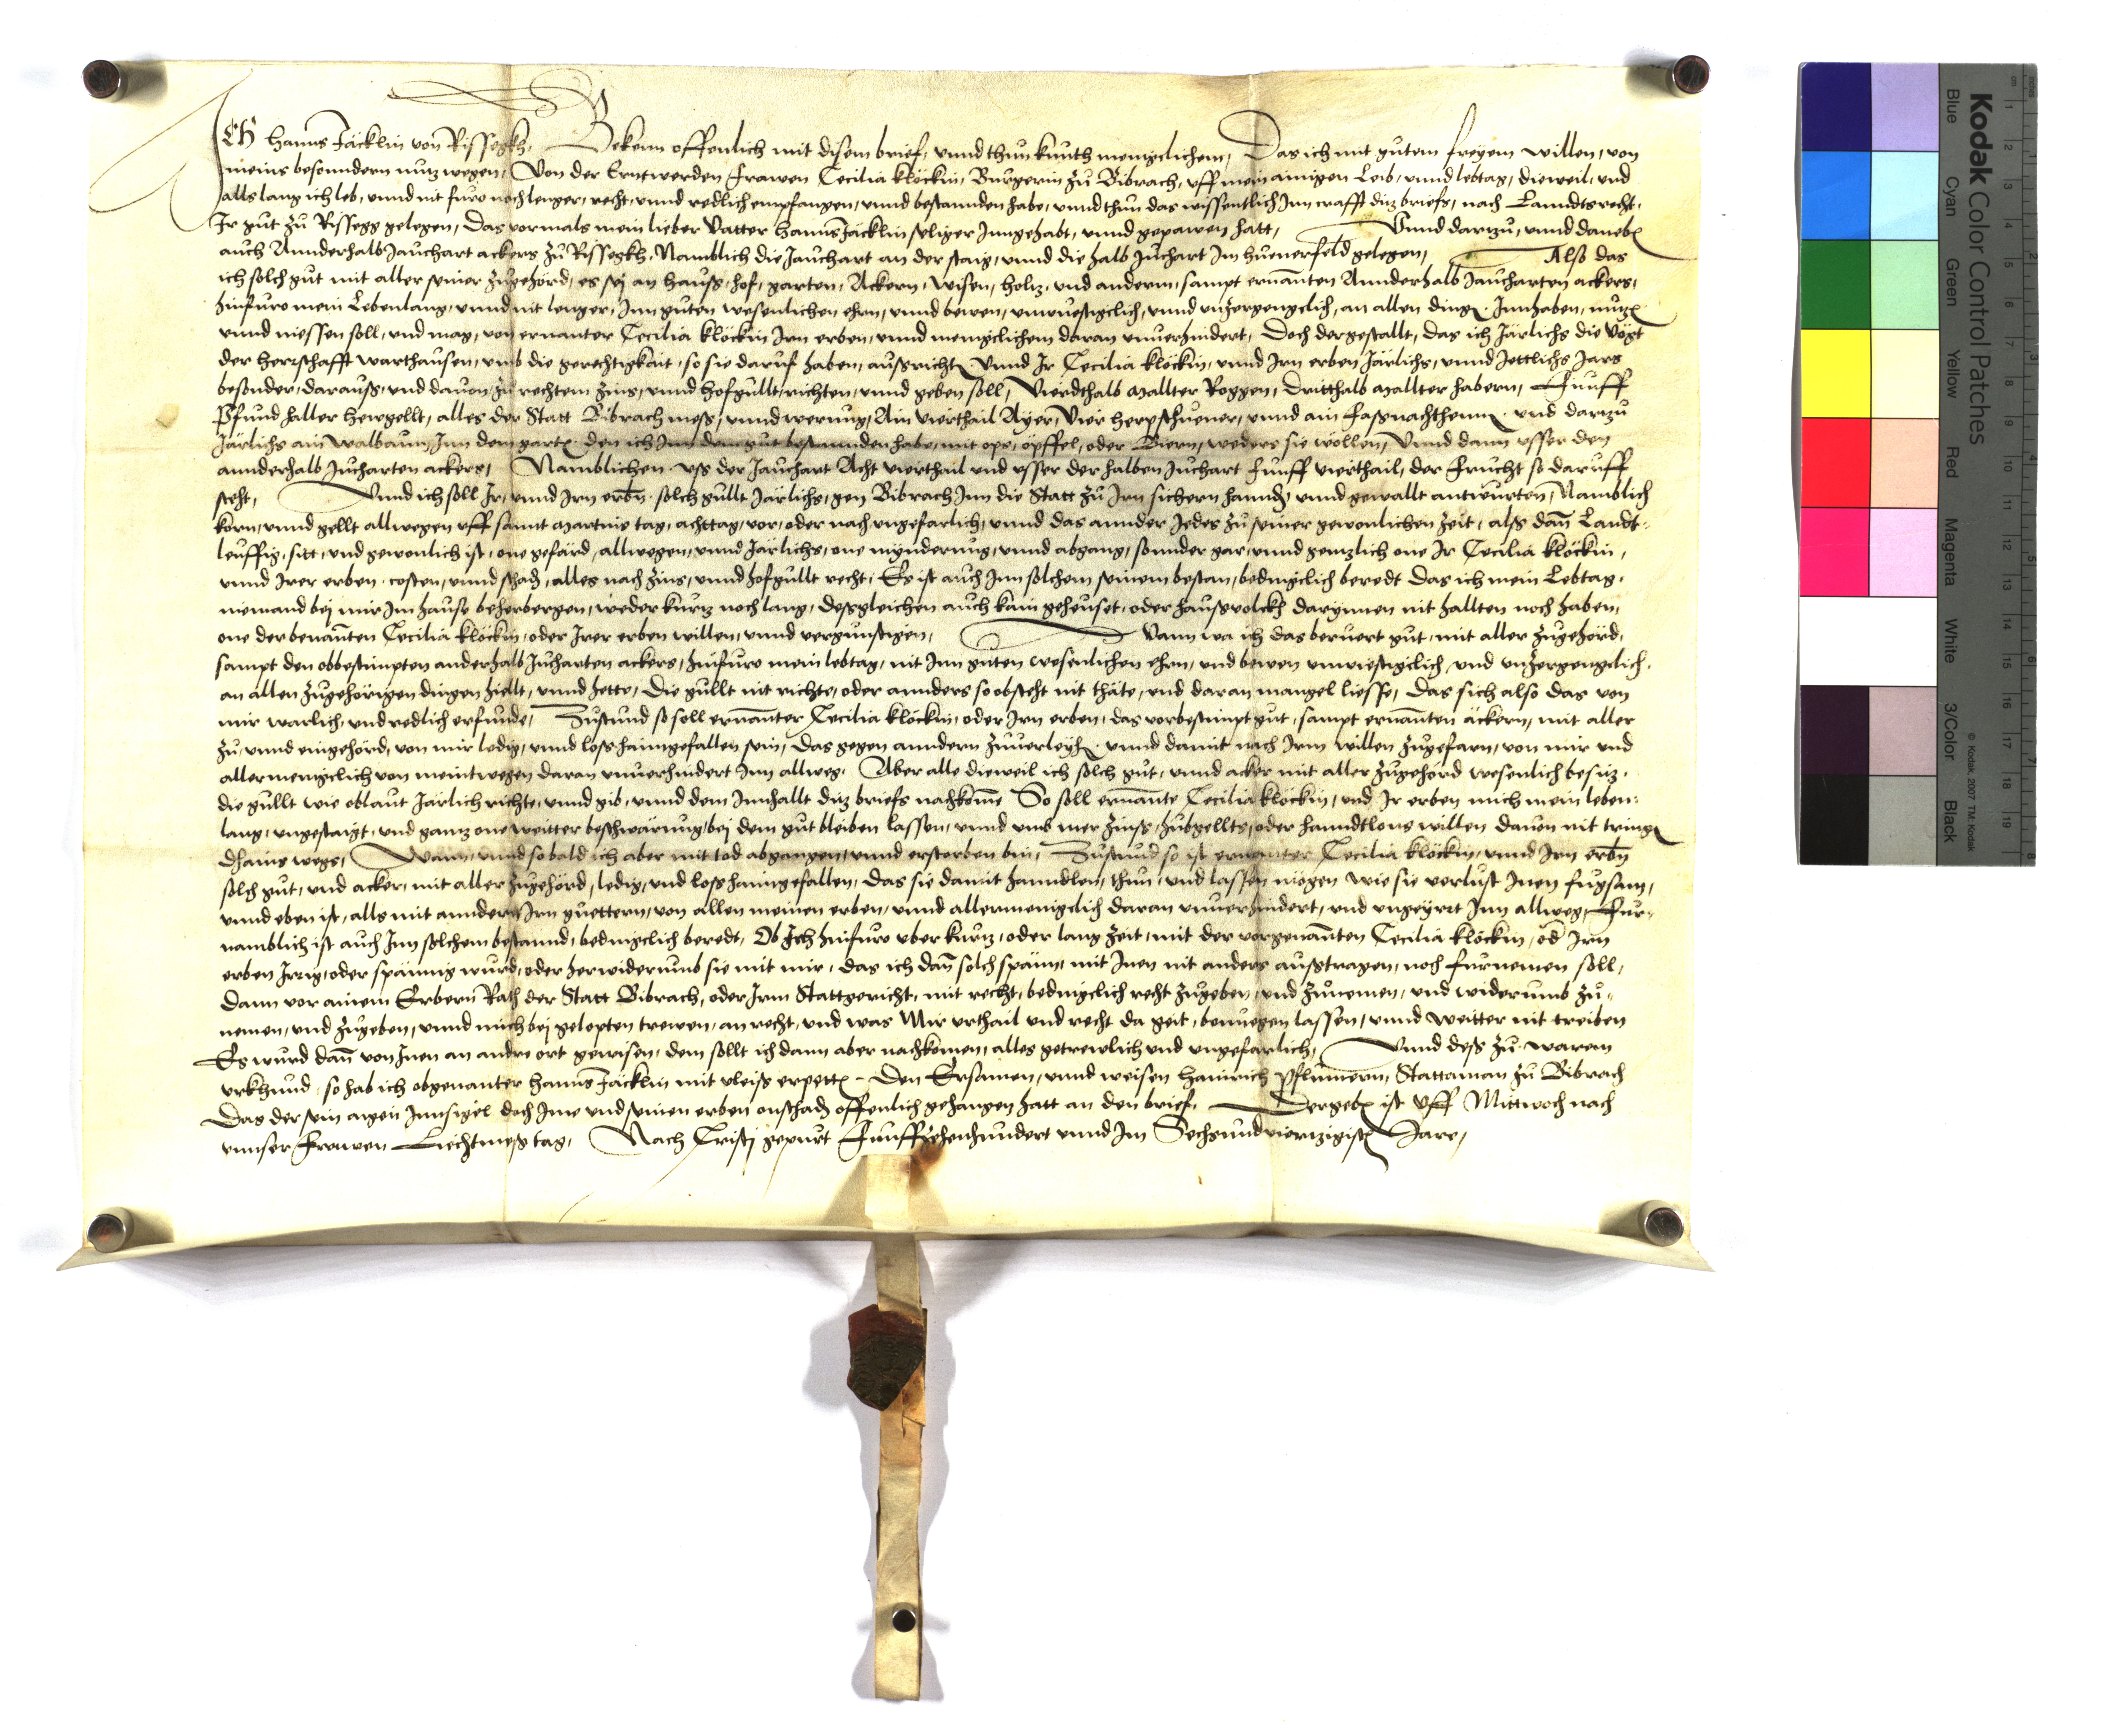 Ich Hanns Jäcklin von Rissegkh, Bekenn offenlich mit disem brief, vnnd thun kunth meniglichem, Das ich mit gutem freyem willen, von
meins besonndern nutz wegen, Von der Erntwerden frawen Cecilia klöckin, Burgerin zu Bibrach, vff mein ainigen Leib, vnnd lebtag, dieweil, vnd
alls lang ich leb, vnnd nit furo noch lenger, recht, vnnd redlich empfangen, vnnd bestannden habe, vnnd thun das wissentlich Inn crafft ditz briefs, nach Lanndtsrecht,
Ir gut zu Rissegg gelegen, Das vormals mein lieber Vatter Hanns Jäcklin seliger Inngehabt, vnnd gepawen hatt, Vnnd dartzu, vnnd daneben
auch Annderhalb Jauchart ackers zu Rissegkh, Namblich die Jauchart an der staig, vnnd die halb Juchart Im huenerfeld gelegen, Also das
ich solch gut mit aller seiner zugehörd, es sej an hauß, hof, garten, Ackern, wisen, holtz, vnd anderm, sampt ernanten Annderhalb Jaucharten ackers,
hinfuro mein Lebenlang, vnnd nit lenger, Inn guten wesenlichen ehrn, vnnd bewen, vnwuestigclich, vnnd vnzergengclich, an allen dingen, Innhaben, nutzen
vnnd niessen soll, vnd mag, von ernanter Cecilia klöckin Irn erben, vnnd meniglichem daran vnuerhindert, Doch dergestallt, das ich Järlichs die Vögt
der herschafft warthausen, vmb die gerechtigkait, so sie daruf haben, außricht, Vnnd Ir Cecilia klöckin, vnnd Irn erben Järlichs, vnnd Jettlichs Jars
besonder, darauß, vnd dauon, zu rechtem zins, vnnd hofgullt, richten, vnnd geben soll, Vierdthalb mallter Roggen, dritthalb mallter habern, Funff
Pfund haller hewgellt, alles der Statt Bibrach meß, vnnd werung, Ain Vierthail Ayer, Vier herpsthuener, vnnd ain faßnachthenn, vnd dartzu
Järlichs ain walbaum, Inn dem garten den ich Inn dem gut bestannden habe, mit ops, öpffel, oder Biern, weders sie wöllen, Vnnd dann vsser den
annderhalb Jucharten ackers, Namblichen vß der Jauchart Acht vierthail vnd vsser der halben Juchart funff vierthail, der frucht so daruff
steht, Vnnd ich soll Ir, vnnd Irn erben solch gullt Järlichs, gen Bibrach Inn die Statt zu Irn sichern hannden vnnd gewallt antwurten, Namblich
korn, vnnd gellt allwegen vff sannt martins tag, achttag, vor, oder nach vngefarlich, vnnd das annder Jedes zu seiner gewonlichen zeit, alß dann Landt-
leuffig, sitt, vnd gewonlich ist, one gefärd, allwegen, vnnd Järlichs, one mynderung, vnnd abgang, sonnder gar, vnnd gentzlich one Ir Cecilia klöckin,
vnnd Irer erben costen, vnnd schaden, alles nach zins, vnnd hofgullt recht, Es ist auch Inn solchem seinem bestan, bedingclich beredt Das ich mein Lebtag,
niemand bej mir Im hause beherbergen, weder kurtz noch lang, deßgleichen auch kain geheuset, oder haußvolckh darynnen nit hallten noch haben,
one der benanten Cecilia klöckin, oder Irer erben willen, vnnd vergunstigen, Vann wa ich das beruert gut, mit aller zugehörd,
sampt den obbestimpten anderhalb Jucharten ackers, hinfuro mein lebtag, nit Inn guten wesenlichen ehrn, vnd bewen vnwiestigclich, vnd vnzergengclich,
an allen zugehörigen dingen hiellt, vnnd hette, die gullt nit richte, oder annders so obsteht nit thäte, vnd daran mangel liesse, Das sich also das von
mir warlich, vnd redlich erfunde, Zustund so soll ernanter Cecilia klöckin, oder Irn erben, das vorbestimpt gut, sampt ernanten äckern, mit aller
zu, vnnd eingehörd, von mir ledig, vnnd loß haimgefallen sein, Das gegen anndern zuuerleyhen, vnnd damit nach Irm willen zugefarn, von mir vnd
allermenigclich von meintwegen daran vnuerhindert Inn allweg, Aber alle dieweil ich solch gut, vnnd acker mit aller zugehörd wesenlich besitz,
die gullt wie oblaut Järlich richte, vnnd gib, vnnd dem Innhallt ditz briefs nachkome So soll ernante Cecilia klöckin, vnd Ir erben mich mein leben-
lang, vngestaigt, vnd gantz one weitter beschwärung, bej dem gut bleiben lassen, vnnd vmb mer zinß, hubgellts, oder hanndtlons willen dauon nit tringen
dhains wegs, Wann, vnnd so bald ich aber mit tod abgangen, vnnd erstorben bin, Zustund so ist ernanter Cecilia klöckin, vnnd Irn erben
solch gut, vnd acker, mit aller zugehörd, ledig, vnd loß haimgefallen, Das sie damit hanndlen, thun, vnd lassen mögen wie sie verlust Inen fugsam,
vnnd eben ist, alls mit anndern Irn guettern, von allen meinen erben, vnnd allermenigclich daran vnuerhindert, vnd vngeyrrt Inn allweg, Fur-
namblich ist auch Inn solchem bestannd, bedingclich beredt, Ob Ich hinfuro vber kurtz, oder lang zeit, mit der vorgenanten Cecilia klöckin, oder Irn
erben Irrig, oder spännig wurd, oder herwiderumb sie mit mir, das ich dan solch spänn, mit Inen nit anders außtragen, noch furnemen soll,
dann vor ainem Erbern Rath der Statt Bibrach, oder Irm Stattgericht, mit recht, bedingclich recht zugeben, vnd zunemen, vnd widerumb zu-
nemen, vnd zugeben, vnnd mich bej gelopten trewen, an recht, vnd was Mir vrthail vnd recht da geit, benuegen lassen, vnnd weitter nit treiben
Es wurd dan von Inen an andre ort gewisen, dem sollt ich dann aber nachkomen, alles getrewlich vnd vngefarlich, Vnnd deß zu warem
vrkhund, so hab ich obgenanter Hanns Jäcklin mit vleiß erpetten Den Ersamen, vnnd weisen Hainrich Pflumern, Stattaman zu Bibrach
Das der sein aigen Innsigel doch Ime vnd seinen erben onschaden offenlich gehangen hatt an den brief, Der geben ist Vff Mittwoch nach
vnnser frawen Liechtmeß tag, Nach Cristj gepurt Funffzehenhundert vnnd Im Sechsundviertzigisten Jare,
Kodak Color Control Patches
Blue Cyan Green Yellow Red Magenta White 3/Color Black
© Kodak, 2007 TM: Kodak